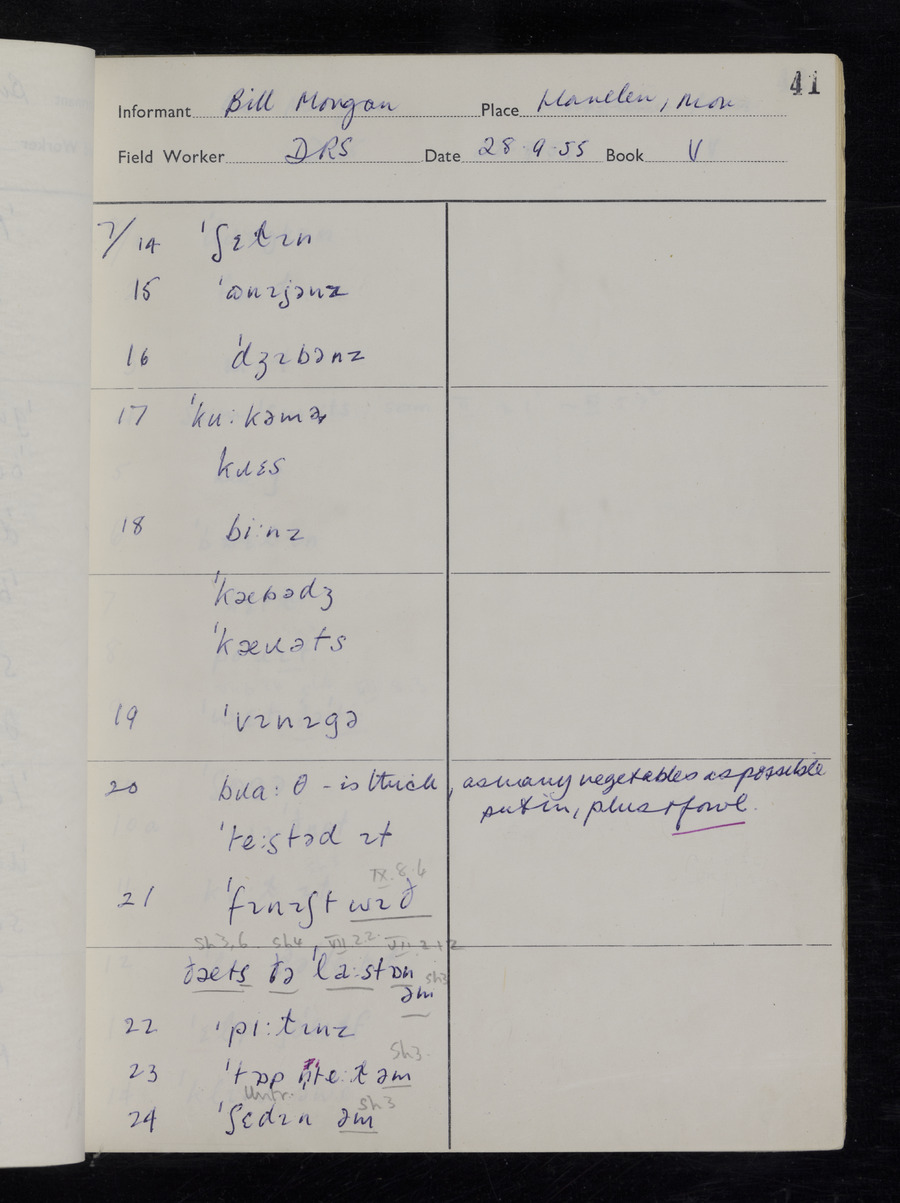 41
Informant Bill Morgan Place Llanellen, Mon
Field Worker DRS Date 28·9·55 Book V
7/14 ˈʃɛtɪn
15 ˈɒnɪjənz
16 ˈdʒɪbənz
17 ˈku:kəmə
kɹɛs
18 bi:nz
ˈkæbədʒ
ˈkæɹəts
19 ˈvɪnɪgə
20 bɹɑ:θ - is thick, as many vegetables as possible
ˈte:stəd ɪt put in, plus fowl.
IX.8.6
21 ˈfɪnɪʃt wɪð
sh3,6. sh4, VII 2 2 VII.2+2
ðæts ðə ˈla:st ɒn
əm sh3
22 ˈpɪ:tɪnz
Sh3.
23 ˈtɒp te:t əm
Untr. Sh3
24 ˈʃɛdɪn əm